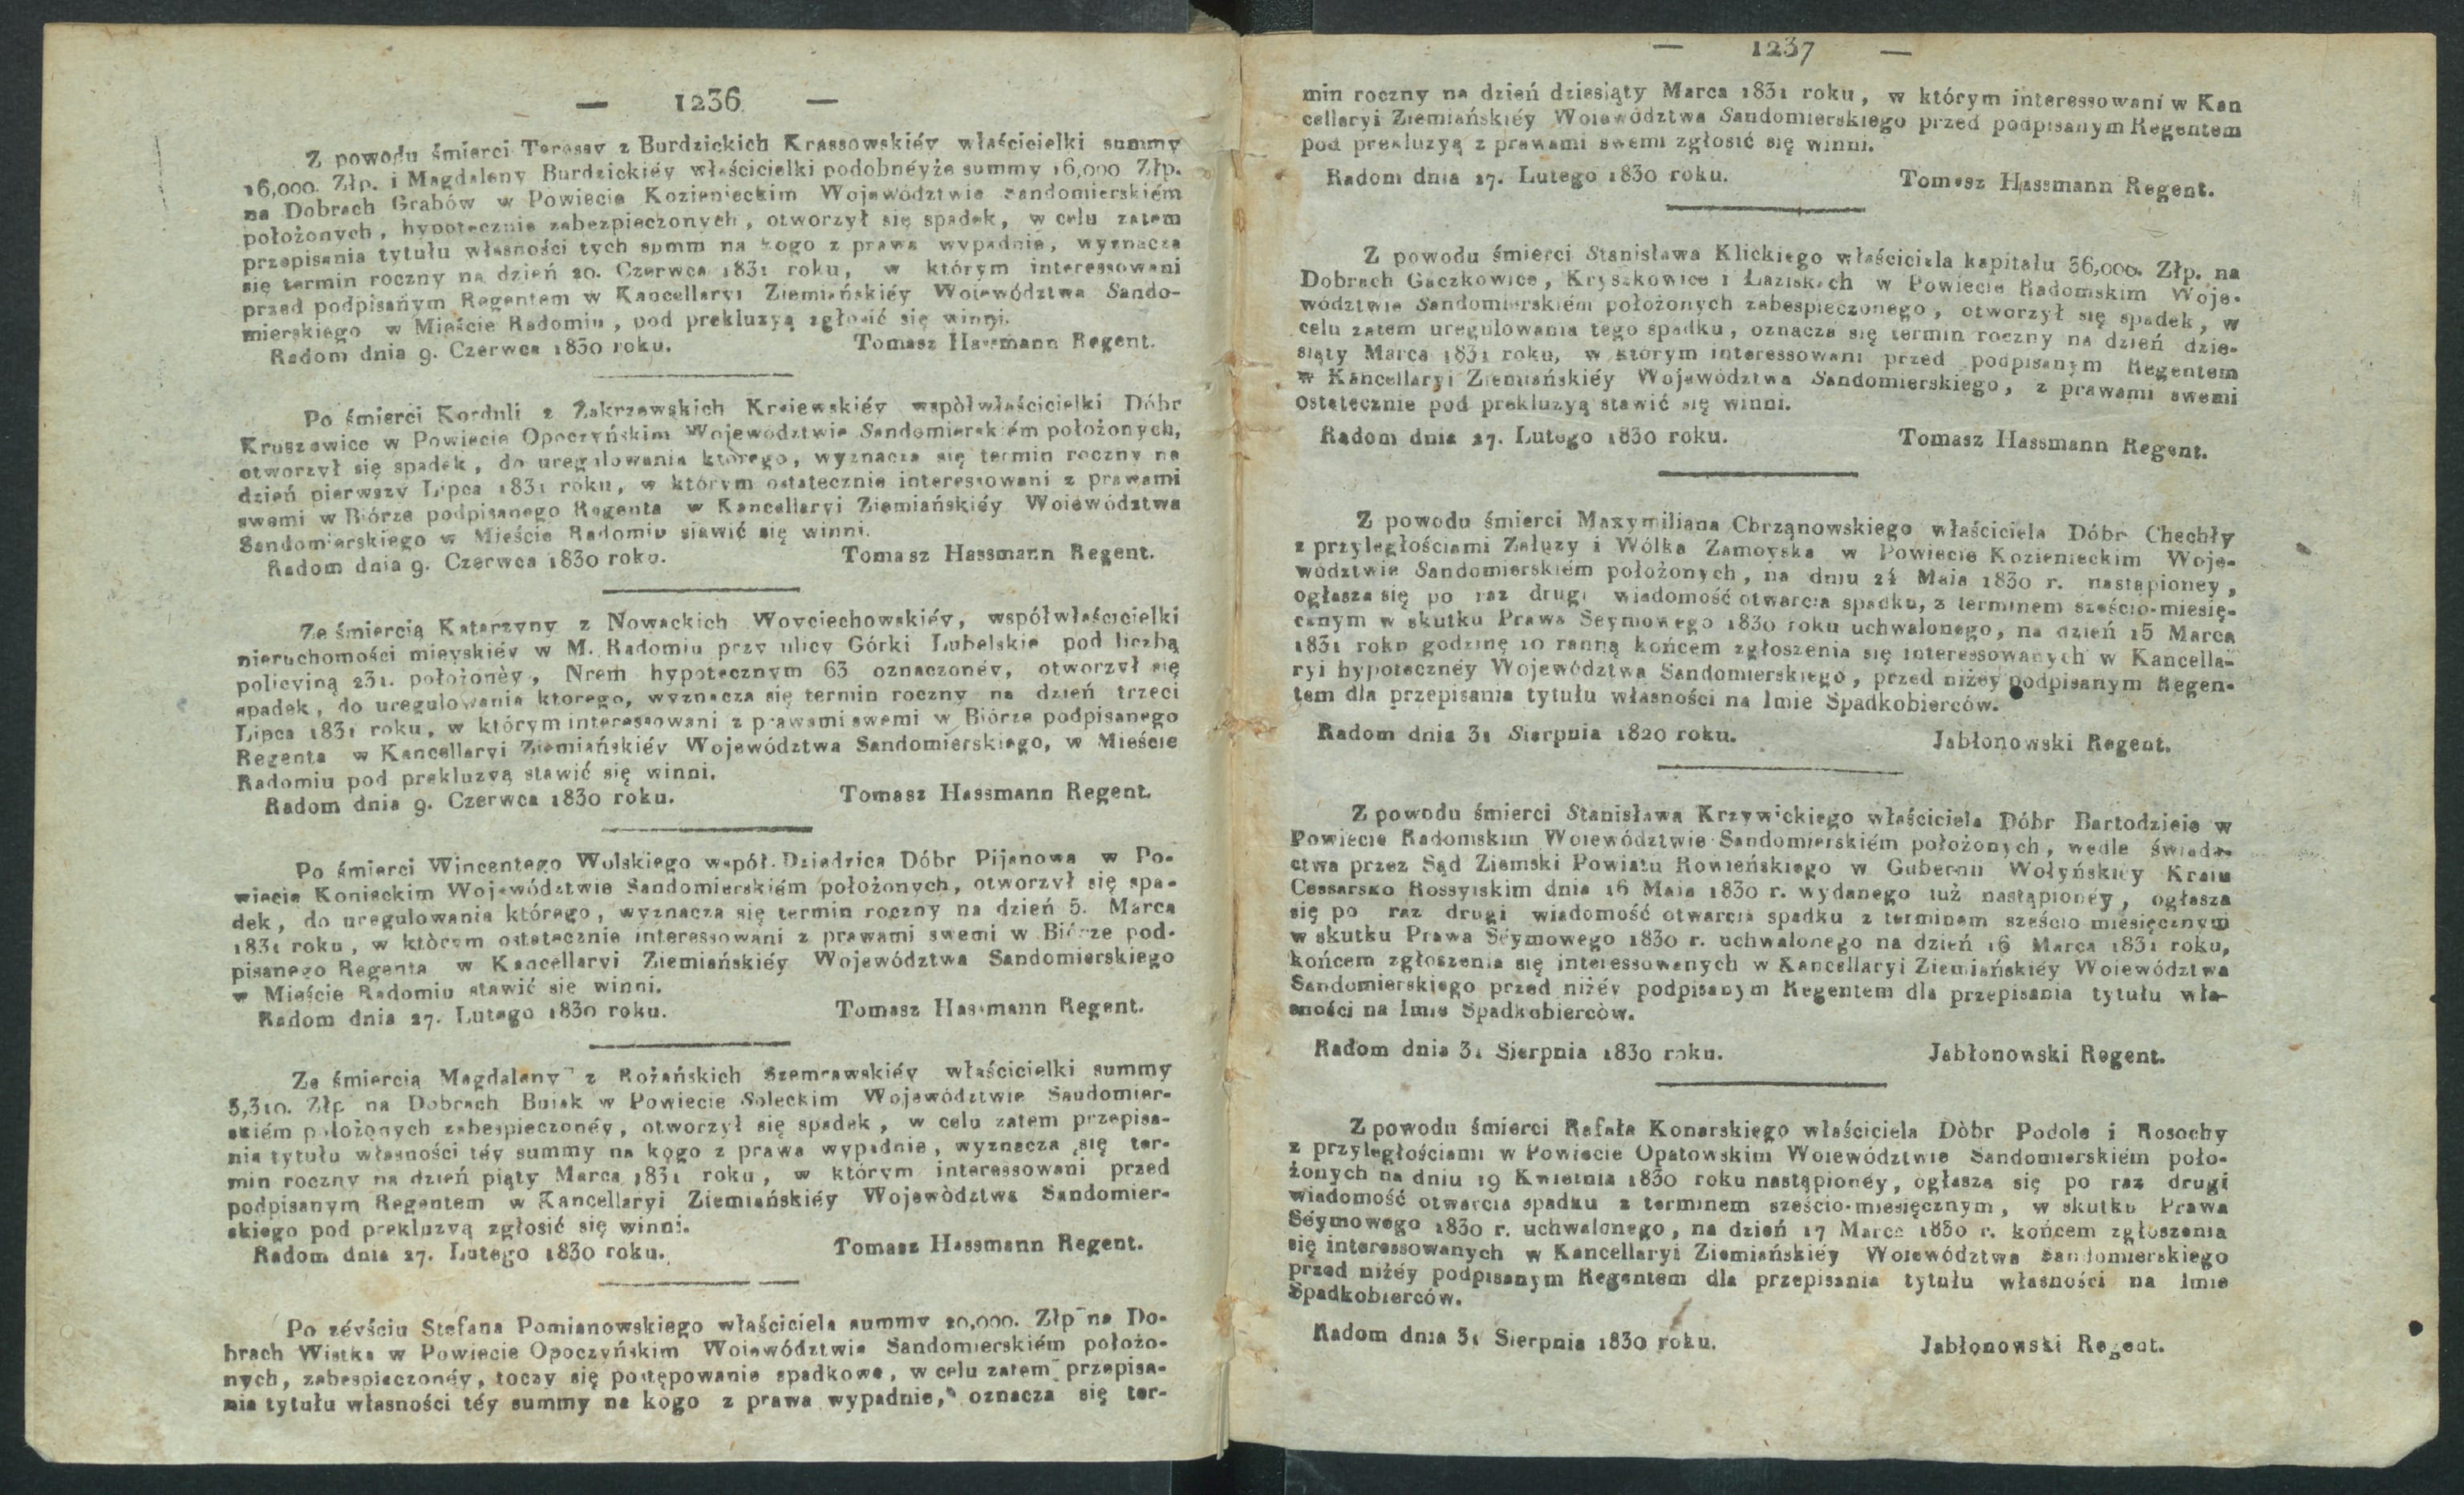 — 1236 —
Z powodu śmierci Teressy z Burdzickich Krassowskiéy właścicielki summy
16,000. Złp. i Magdaleny Burdzickiéy właścicielki podobnéyże summy 16,000 Złp.
na Dobrach Grabów w Powiecie Kozienieckim Województwie Sandomierskiém
położonych, hypotecznie zabezpieczonych, otworzył się spadek, w celu zatem
przepisania tytułu własności tych summ na kogo z prawa wypadnie, wyznacza
się termin roczny na dzień 20. Czerwca 1831 roku, w którym interessowani
przed podpisanym Regentem w Kancellaryi Ziemiańskiéy Woiewództwa Sando-
mierskiego w Mieście Radomiu, pod prekluzyą zgłosić się winni.
Radom dnia 9. Czerwca 1830 roku. Tomasz Hassmann Regent.
Po śmierci Korduli z Zakrzewskich Kraiewskiéy wspòłwłaścicielki Dóbr
Kruszewice w Powiecie Opoczyńskim Województwie Sandomierskiém położonych,
otworzył się spadek, do uregulowania którego, wyznacza się termin roczny na
dzień pierwszy Lipca 1831 roku, w którym ostatecznie interessowani z prawami
swemi w Biórze podpisanego Regenta w Kancellaryi Ziemiańskiéy Woiewództwa
Sandomierskiego w Mieście Radomiu stawić się winni.
Radom dnia 9. Czerwca 1830 roku. Tomasz Hassmann Regent.
Ze śmiercią Katarzyny z Nowackich Woyciechowskiéy, współwłaścicielki
nieruchomości mieyskiéy w M. Radomiu przy ulicy Górki Lubelskie pod liczbą
policyiną 231. położonèy, Nrem hypotecznym 63 oznaczonéy, otworzył się
spadek, do uregulowania ktorego, wyznacza się termin roczny na dzień trzeci
Lipca 1831 roku, w którym interessowani z prawami swemi w Biórze podpisanego
Regenta w Kancellaryi Ziemiańskiéy Województwa Sandomierskiego, w Mieście
Radomiu pod prekluzyą stawić się winni.
Radom dnia 9. Czerwca 1830 roku. Tomasz Hassmann Regent.
Po śmierci Wincentego Wolskiego współ-Dziedzica Dóbr Pijanowa w Po-
wiecie Konieckim Województwie Sandomierskiém położonych, otworzył się spa-
dek, do uregulowania którego, wyznacza się termin roczny na dzień 5. Marca
1831 roku, w którym ostatecznie interessowani z prawami swemi w Biórze pod-
pisanego Regenta w Kancellaryi Ziemiańskiéy Województwa Sandomierskiego
w Mieście Radomiu stawić się winni.
Radom dnia 27. Lutego 1830 roku. Tomasz Hassmann Regent.
Ze śmiercią Magdaleny z Rożańskich Szemrawskiéy właścicielki summy
3,310. Złp na Dobrach Buiak w Powiecie Soleckim Województwie Sandomier-
skiém położonych zabespieczonéy, otworzył się spadek, w celu zatem przepisa-
nia tytułu własności téy summy na kogo z prawa wypadnie, wyznacza się ter-
min roczny na dzień piąty Marca 1831 roku, w którym interessowani przed
podpisanym Regentem w Kancellaryi Ziemiańskiéy Wojewòdztwa Sandomier-
skiego pod prekluzyą zgłosić się winni.
Radom dnia 27. Lutego 1830 roku. Tomasz Hassmann Regent.
Po zéyściu Stefana Pomianowskiego właściciela summy 20,000. Złp na Do-
brach Wistka w Powiecie Opoczyńskim Woiewództwie Sandomierskiém położo-
nych, zabespieczonéy, toczy się postępowanie spadkowe, w celu zatem przepisa-
nia tytułu własności téy summy na kogo z prawa wypadnie, oznacza się ter-
— 1237 —
min roczny na dzień dziesiąty Marca 1831 roku, w którym interessowani w Kan
cellaryi Ziemiańskiéy Woiewództwa Sandomierskiego przed podpisanym Regentem
pod prekluzyą z prawami swemi zgłosić się winni.
Radom dnia 27. Lutego 1830 roku. Tomasz Hassmann Regent.
Z powodu śmierci Stanisława Klickiego właściciela kapitału 36,000. Złp. na
Dobrach Gaczkowice, Kryszkowice i Łaziskach w Powiecie Radomskim Woje-
wództwie Sandomierskiém położonych zabespieczonego, otworzył się spadek, w
celu zatem uregulowania tego spadku, oznacza się termin roczny na dzień dzie-
siąty Marca 1831 roku, w którym interessowani przed podpisanym Regentem
w Kancellaryi Ziemiańskiéy Województwa Sandomierskiego, z prawami swemi
ostatecznie pod prekluzyą stawić się winni.
Radom dnia 27. Lutego 1830 roku. Tomasz Hassmann Regent.
Z powodu śmierci Maxymiliana Chrząnowskiego właściciela Dóbr Chechły
z przyległościami Załuzy i Wólka Zamoyska w Powiecie Kozienieckim Woje-
wództwie Sandomierskiém położonych, na dniu 24 Maia 1830 r. nastąpioney,
ogłasza się po raz drugi wiadomość otwarcia spadku, z terminem sześcio-miesię-
cznym w skutku Prawa Seymowego 1830 roku uchwalonego, na dzień 15 Marca
1831 roku godzinę 10 ranną końcem zgłoszenia się interessowanych w Kancella-
ryi hypotecznéy Województwa Sandomierskiego, przed niżéy podpisanym Regen-
tem dla przepisania tytułu własności na Imie Spadkobierców.
Radom dnia 31 Sierpnia 1820 roku. Jabłonowski Regent.
Z powodu śmierci Stanisława Krzywickiego właściciela Dóbr Bartodzieie w
Powiecie Radomskim Woiewództwie Sandomierskiém położonych, wedle świade-
ctwa przez Sąd Ziemski Powiatu Rowieńskiego w Gubernii Wołyńskiéy Kraiu
Cessarsko Rossyiskim dnia 16 Maia 1830 r. wydanego iuż nastąpionéy, ogłasza
się po raz drugi wiadomość otwarcia spadku z terminem sześcio miesięcznym
w skutku Prawa Séymowego 1830 r. uchwalonego na dzień 16 Marca 1831 roku,
końcem zgłoszenia się interessowanych w Kancellaryi Ziemiańskiéy Woiewództwa
Sandomierskiego przed niżéy podpisanym Regentem dla przepisania tytułu wła-
sności na Imie Spadkobierców.
Radom dnia 31 Sierpnia 1830 roku. Jabłonowski Regent.
Z powodu śmierci Rafała Konarskiego właściciela Dòbr Podole i Rosochy
z przyległościami w Powiecie Opatowskim Woiewództwie Sandomierskiém poło-
żonych na dniu 19 Kwietnia 1830 roku nastąpionéy, ogłasza się po raz drugi
wiadomość otwarcia spadku z terminem sześcio-miesięcznym, w skutku Prawa
Séymowego 1830 r. uchwalonego, na dzień 17 Marca 1830 r. końcem zgłoszenia
się interessowanych w Kancellaryi Ziemiańskiéy Woiewództwa Sandomierskiego
przed niżéy podpisanym Regentem dla przepisania tytułu własności na Imie
Spadkobierców.
Radom dnia 31 Sierpnia 1830 roku. Jabłonowski Regent.